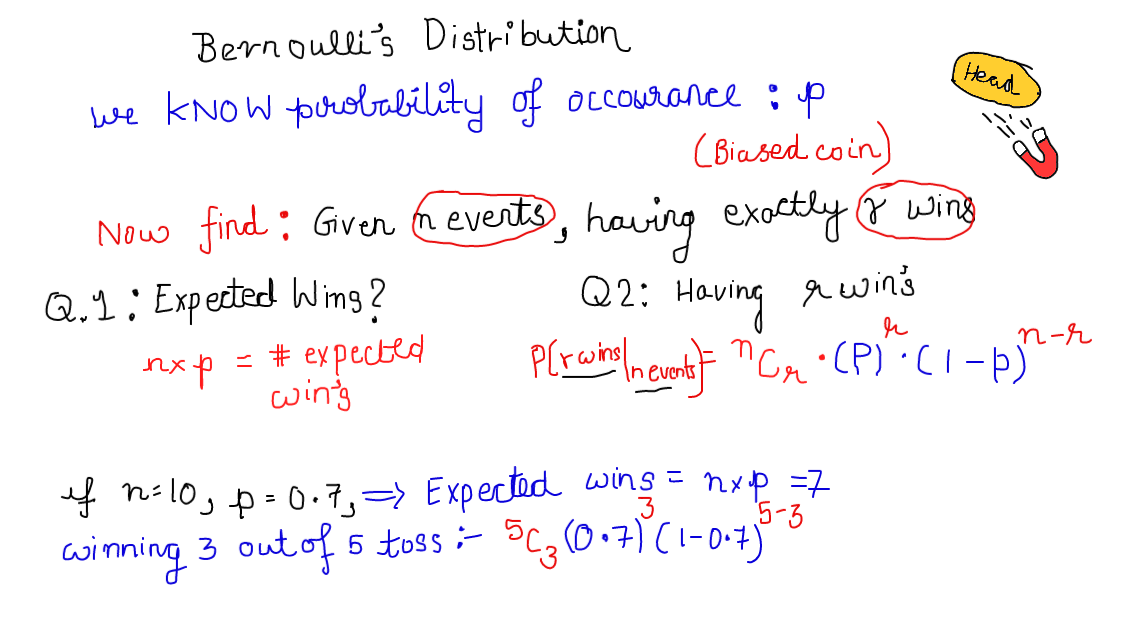 Bernoulli's Distribution
we KNOW probability of occourance : p
Head
(Biased coin)
Now find : Given n events, having exactly r wins
Q.1 : Expected Wins?
Q2: Having r win's
n×p = # expected win's
P(r wins|n events) = ⁿCᵣ · (P)ʳ · (1-p)ⁿ⁻ʳ
if n=10, p = 0.7, => Expected wins = n×p = 7
winning 3 out of 5 toss :- ⁵C₃ (0.7)³ (1-0.7)⁵⁻³